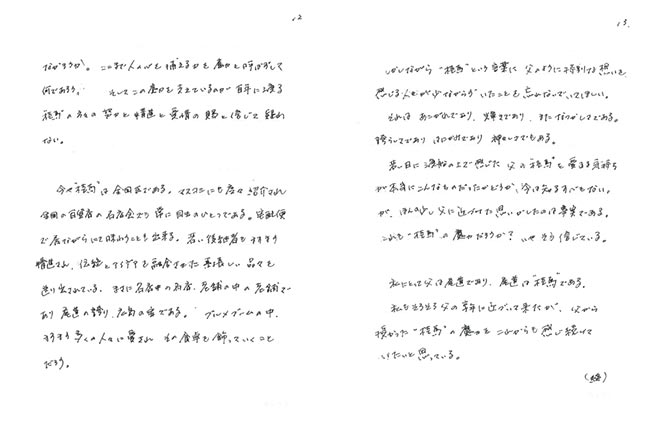 12
なかろうか。ここまで人の心を捕えるかを魔力と呼ばずして
何であろう。 そしてこの魔力を支えているのが百年に渡る
桂馬の方々の努力と精進と愛情の賜と信じて疑わ
ない。
今や"桂馬"は全国区である。マスコミにも度々紹介され
全国の百貨店の名店会でも常に目玉のひとつである。宅配便
で居ながらにして味わうことも出来る。若い後継者もますます
精進され、伝統とアイデアを融合させた素晴しい品々を
造り出されている。まさに名店中の名店、老舗の中の老舗で
あり尾道の誇り、広島の宝である。 グルメブームの中、
ますます多くの人々に愛され その食卓を飾っていくこと
だろう。
13.
しかしながら"桂馬"という言葉に父のように特別な想いを
感じる人々が少なからずいたことを忘れないでいてほしい。
それは あこがれであり、輝きであり、またなつかしさである。
誇らしさであり はにかみであり 神々しさでもある。
若い日に渡船の上で感じた 父の"桂馬"を愛する気持ち
が本当にこんなものだったかどうか、今は知るすべもない。
が、ほんの少し父に近づけた思いがしたのは事実である。
これも"桂馬"の魔力だろうか? いや そう信じている。
私にとって父は尾道であり、尾道は"桂馬"である。
私もそろそろ父の享年に近づいて来たが、父から
授かった"桂馬"の魔力を これからも感じ続けて
いきたいと思っている。
(終)